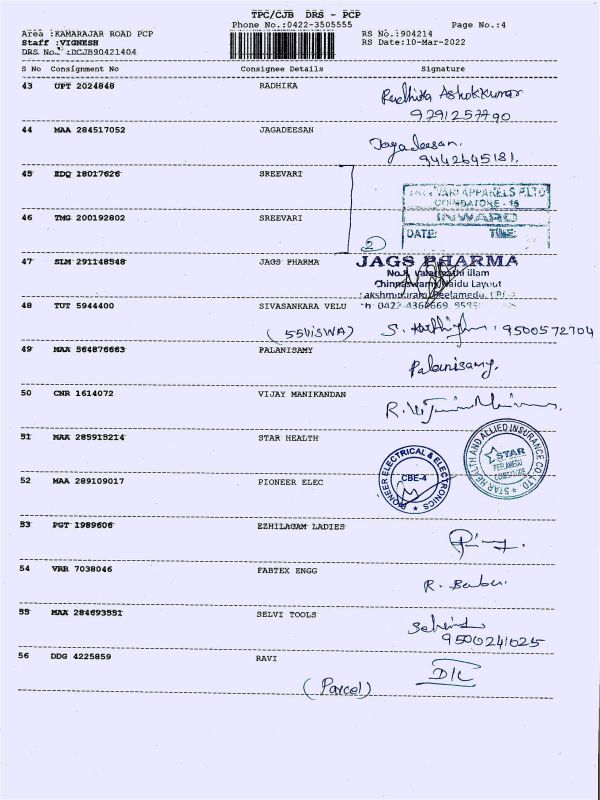 TPC/CJB DRS - PCP
Phone No.:0422-3505555 Page No.:4
Area :KAMARAJAR ROAD PCP RS No.:904214
Staff :VIGNESH RS Date:10-Mar-2022
DRS No. :DCJB90421404
S No Consignment No Consignee Details Signature
43 UPT 2024848 RADHIKA Radhika Ashokkumar
9791257790
44 MAA 284517052 JAGADEESAN Jagadeesan.
9442645181.
45 EDQ 18017626 SREEVARI
VARI APPARELS P.LTD
COIMBATORE - 15
46 TMG 200192802 SREEVARI INWARD
2 DATE: TIME:
47 SLM 291148548 JAGS PHARMA JAGS PHARMA
illam
Chinnaswamy Naidu Layout
48 TUT 5944400 SIVASANKARA VELU
(55VISWA) 9500572704
49 MAA 564876663 PALANISAMY Palanisamy.
50 CNR 1614072 VIJAY MANIKANDAN
51 MAA 285915214 STAR HEALTH
STAR HEALTH AND ALLIED INSURANCE CO.LTD
STAR
PEELAMEDU
COIMBATORE
52 MAA 289109017 PIONEER ELEC
PIONEER ELECTRICAL & ELECTRONICS
CBE-4
53 PGT 1989606 EZHILAGAM LADIES
54 VRR 7038046 FABTEX ENGG R. Babu.
55 MAA 284693551 SELVI TOOLS
9500241025
56 DDG 4225859 RAVI
(Parcel)